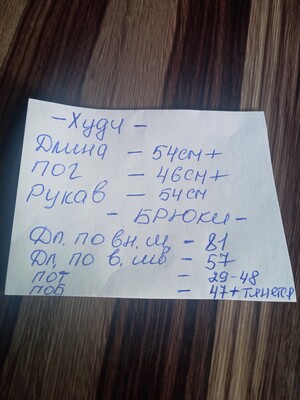 - Худи -
Длина - 54см+
ПОГ - 46см+
Рукав - 54см
- БРЮКИ -
Дл. по вн. ш - 81
Дл. по в. шв - 57
ПОТ - 29-48
ПОБ - 47+тянется